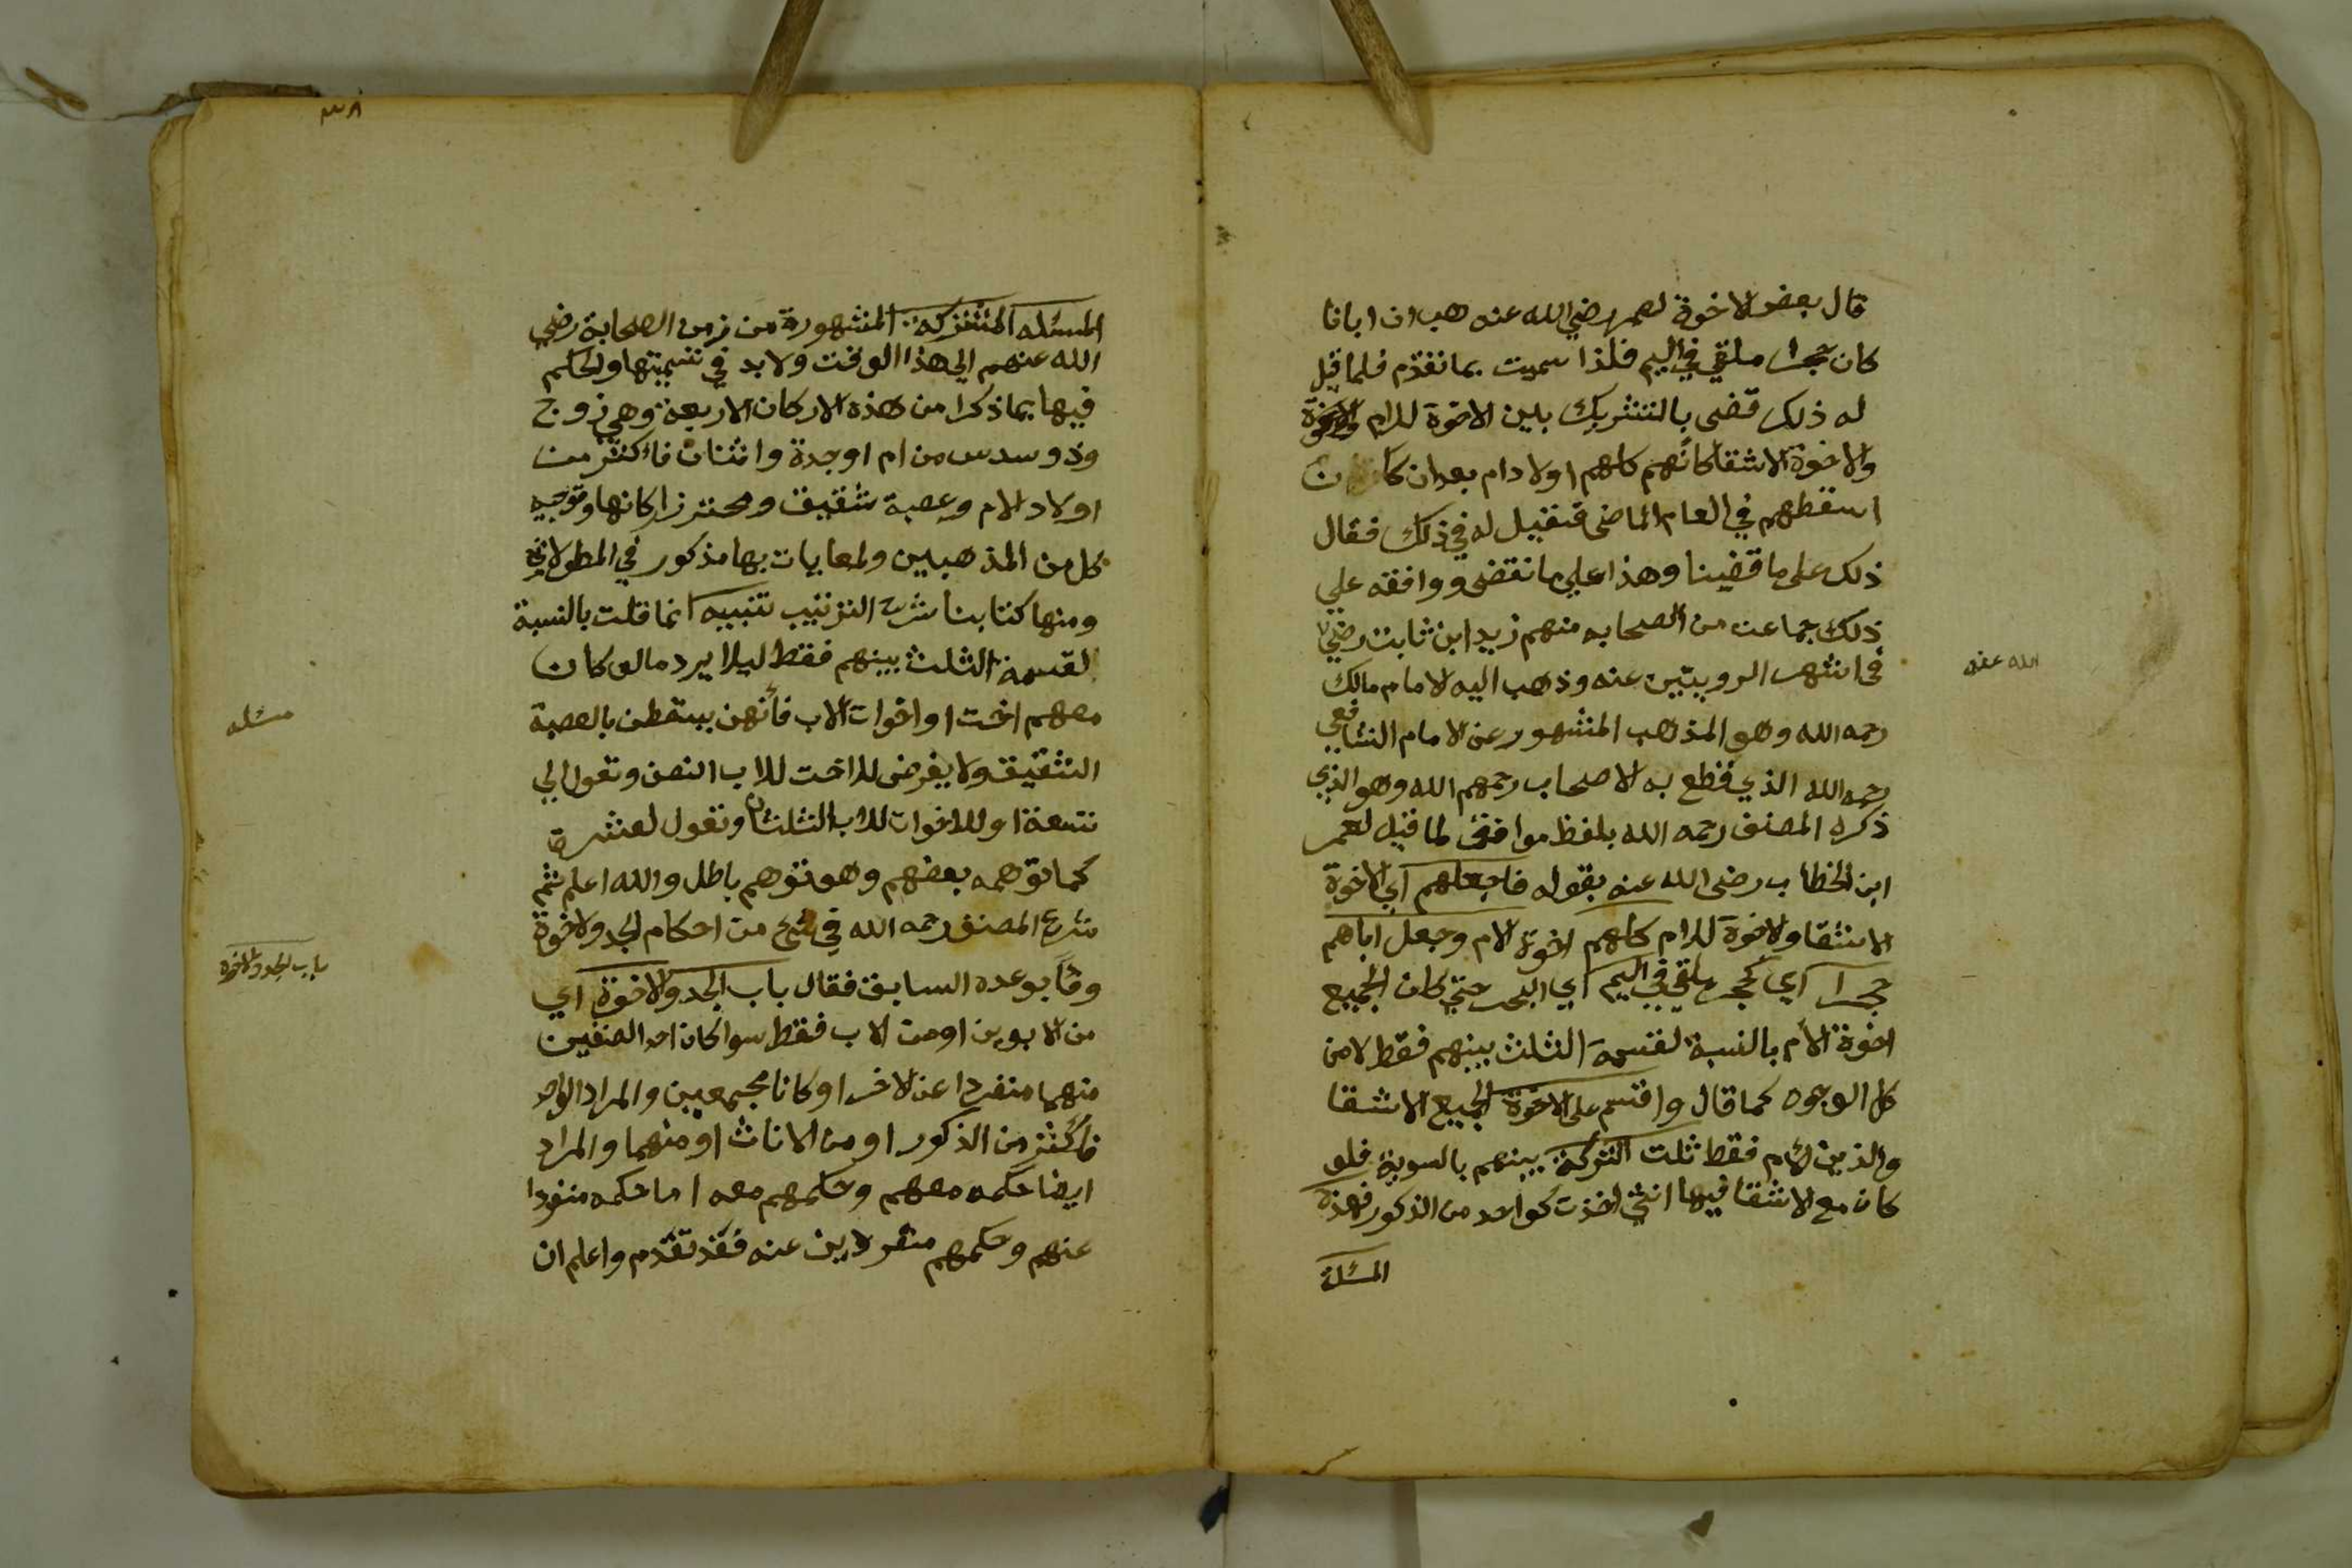 قال بعض الاخوة لعمر رضي الله عنه هب ان ابانا
كان حجرا ملقي في اليم فلذا سميت بما تقدم فلما قيل
له ذلك قضى بالتشريك بين الاخوة للام
والاخوة الاشقا كانهم كلهم اولاد ام بعد ان كان
اسقطهم في العام الماضى فقيل له في ذلك فقال
ذلك على ما قضينا وهذا علي ما نقضى ووافقه علي
ذلك جماعت من الصحابه منهم زيد ابن ثابت رضي
الله عنه
في اشهر الرويتين عنه وذهب اليه الامام مالك
رحمه الله وهو المذهب المشهور عن الامام الشافعي
رحمه الله الذي قطع به الاصحاب رحمهم الله وهو الذي
ذكره المصنف رحمه الله بلفظ موافق لما قيل لعمر
ابن الخطاب رضى الله عنه بقوله فاجعلهم اي الاخوة
الاشقا والاخوة للام كلهم اخوة لام وجعل اباهم
حجرا اي كحجر ملقي في اليم اي البحر حتي كان الجميع
اخوة الام بالنسبة لقسمة الثلث بينهم فقط لا من
كل الوجوه كما قال واقسم على الاخوة الجميع الاشقا
والذين لام فقط ثلت التركة بينهم بالسوية فلو
كان مع الاشقا فيها انثي اخذت كواحد من الذكور فهذه
المسئلة
٣٨
المسئله المشتركة المشهورة من زمن الصحابة رضي
الله عنهم الي هذا الوقت ولا بد في تسميتها والحكم
فيها بما ذكرا من هذه الاركان الاربعة وهي زوج
وذو سدس من ام او جدة واثنان فاكثر من
اولاد الام وعصبة شقيق ومحترز اركانها وتوجيه
كل من المذهبين والمعايات بها مذكور في المطولات
ومنها كتابنا شرح الترتيب تنبيه انما قلت بالنسبة
لقسمة الثلث بينهم فقط ليلا يرد ما لو كان
مسئله
معهم اخت او اخوات لاب فانهن يسقطن بالعصبة
الشقيق ولا يفرض للاخت للاب النصف وتعول الي
تسعة او للاخوات للاب الثلثان وتعول لعشرة
كما توهمه بعضهم وهو توهم باطل والله اعلم ثم
شرع المصنف رحمه الله في شئ من احكام الجد والاخوة
باب الجد والاخوة
وفا بوعده السابق فقال باب الجد والاخوة اي
من الابوين او من الاب فقط سوا كان احد الصنفين
منهما منفردا عن الاخر او كانا مجتمعين والمراد الواحد
فاكثر من الذكور او من الاناث او منهما والمراد
ايضا حكمه معهم وحكمهم معه اما حكمه منفردا
عنهم وحكمهم منفردين عنه فقد تقدم واعلم ان